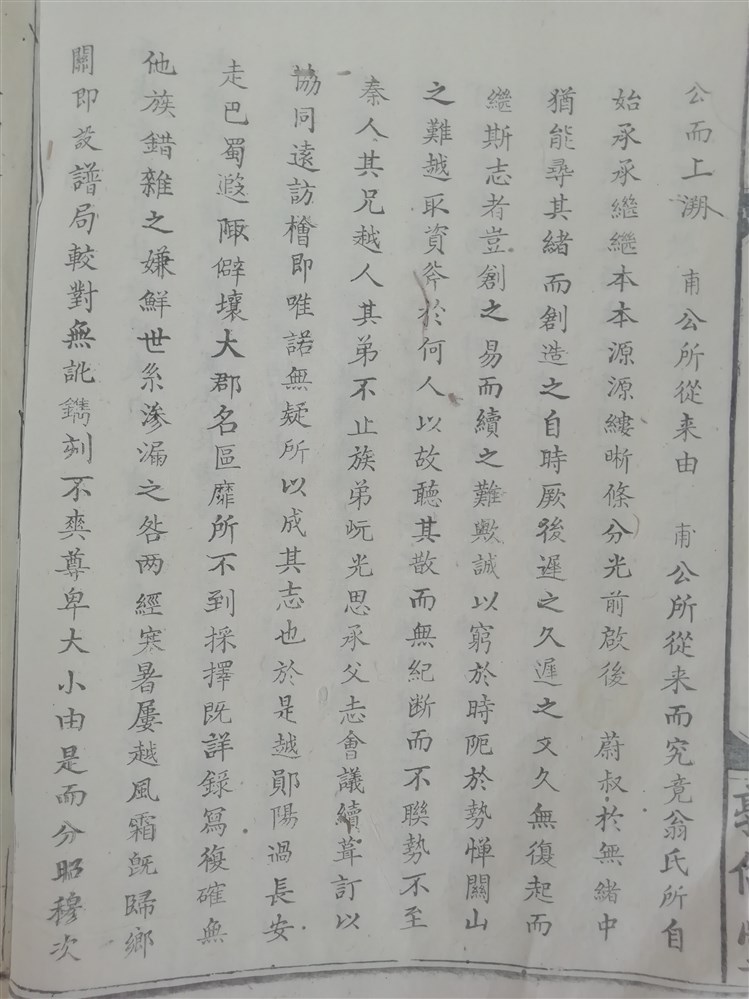 公而上溯　甫公所從来由　甫公所從来而究竟翁氏所自
始承承繼繼本本源源縷晣條分光前啟後　蔚叔於無緒中
猶能尋其緒而創造之自時厥後遲之久遲之又久無復起而
繼斯志者豈創之易而續之難歟誠以窮於時阨於勢憚關山
之難越取資斧於何人以故聽其散而無紀断而不聯勢不至
秦人其兄越人其弟不止族弟岏光思承父志會議續葺訂以
協同遠訪檜即唯諾無疑所以成其志也於是越鄖陽過長安
走巴蜀遐陬僻壤大郡名區靡所不到採擇既詳錄寫複確無
他族錯雜之嫌鮮世系滲漏之咎两經寒暑屢越風霜既歸鄉
關即設譜局較對無訛鐫刻不爽尊卑大小由是而分昭穆次